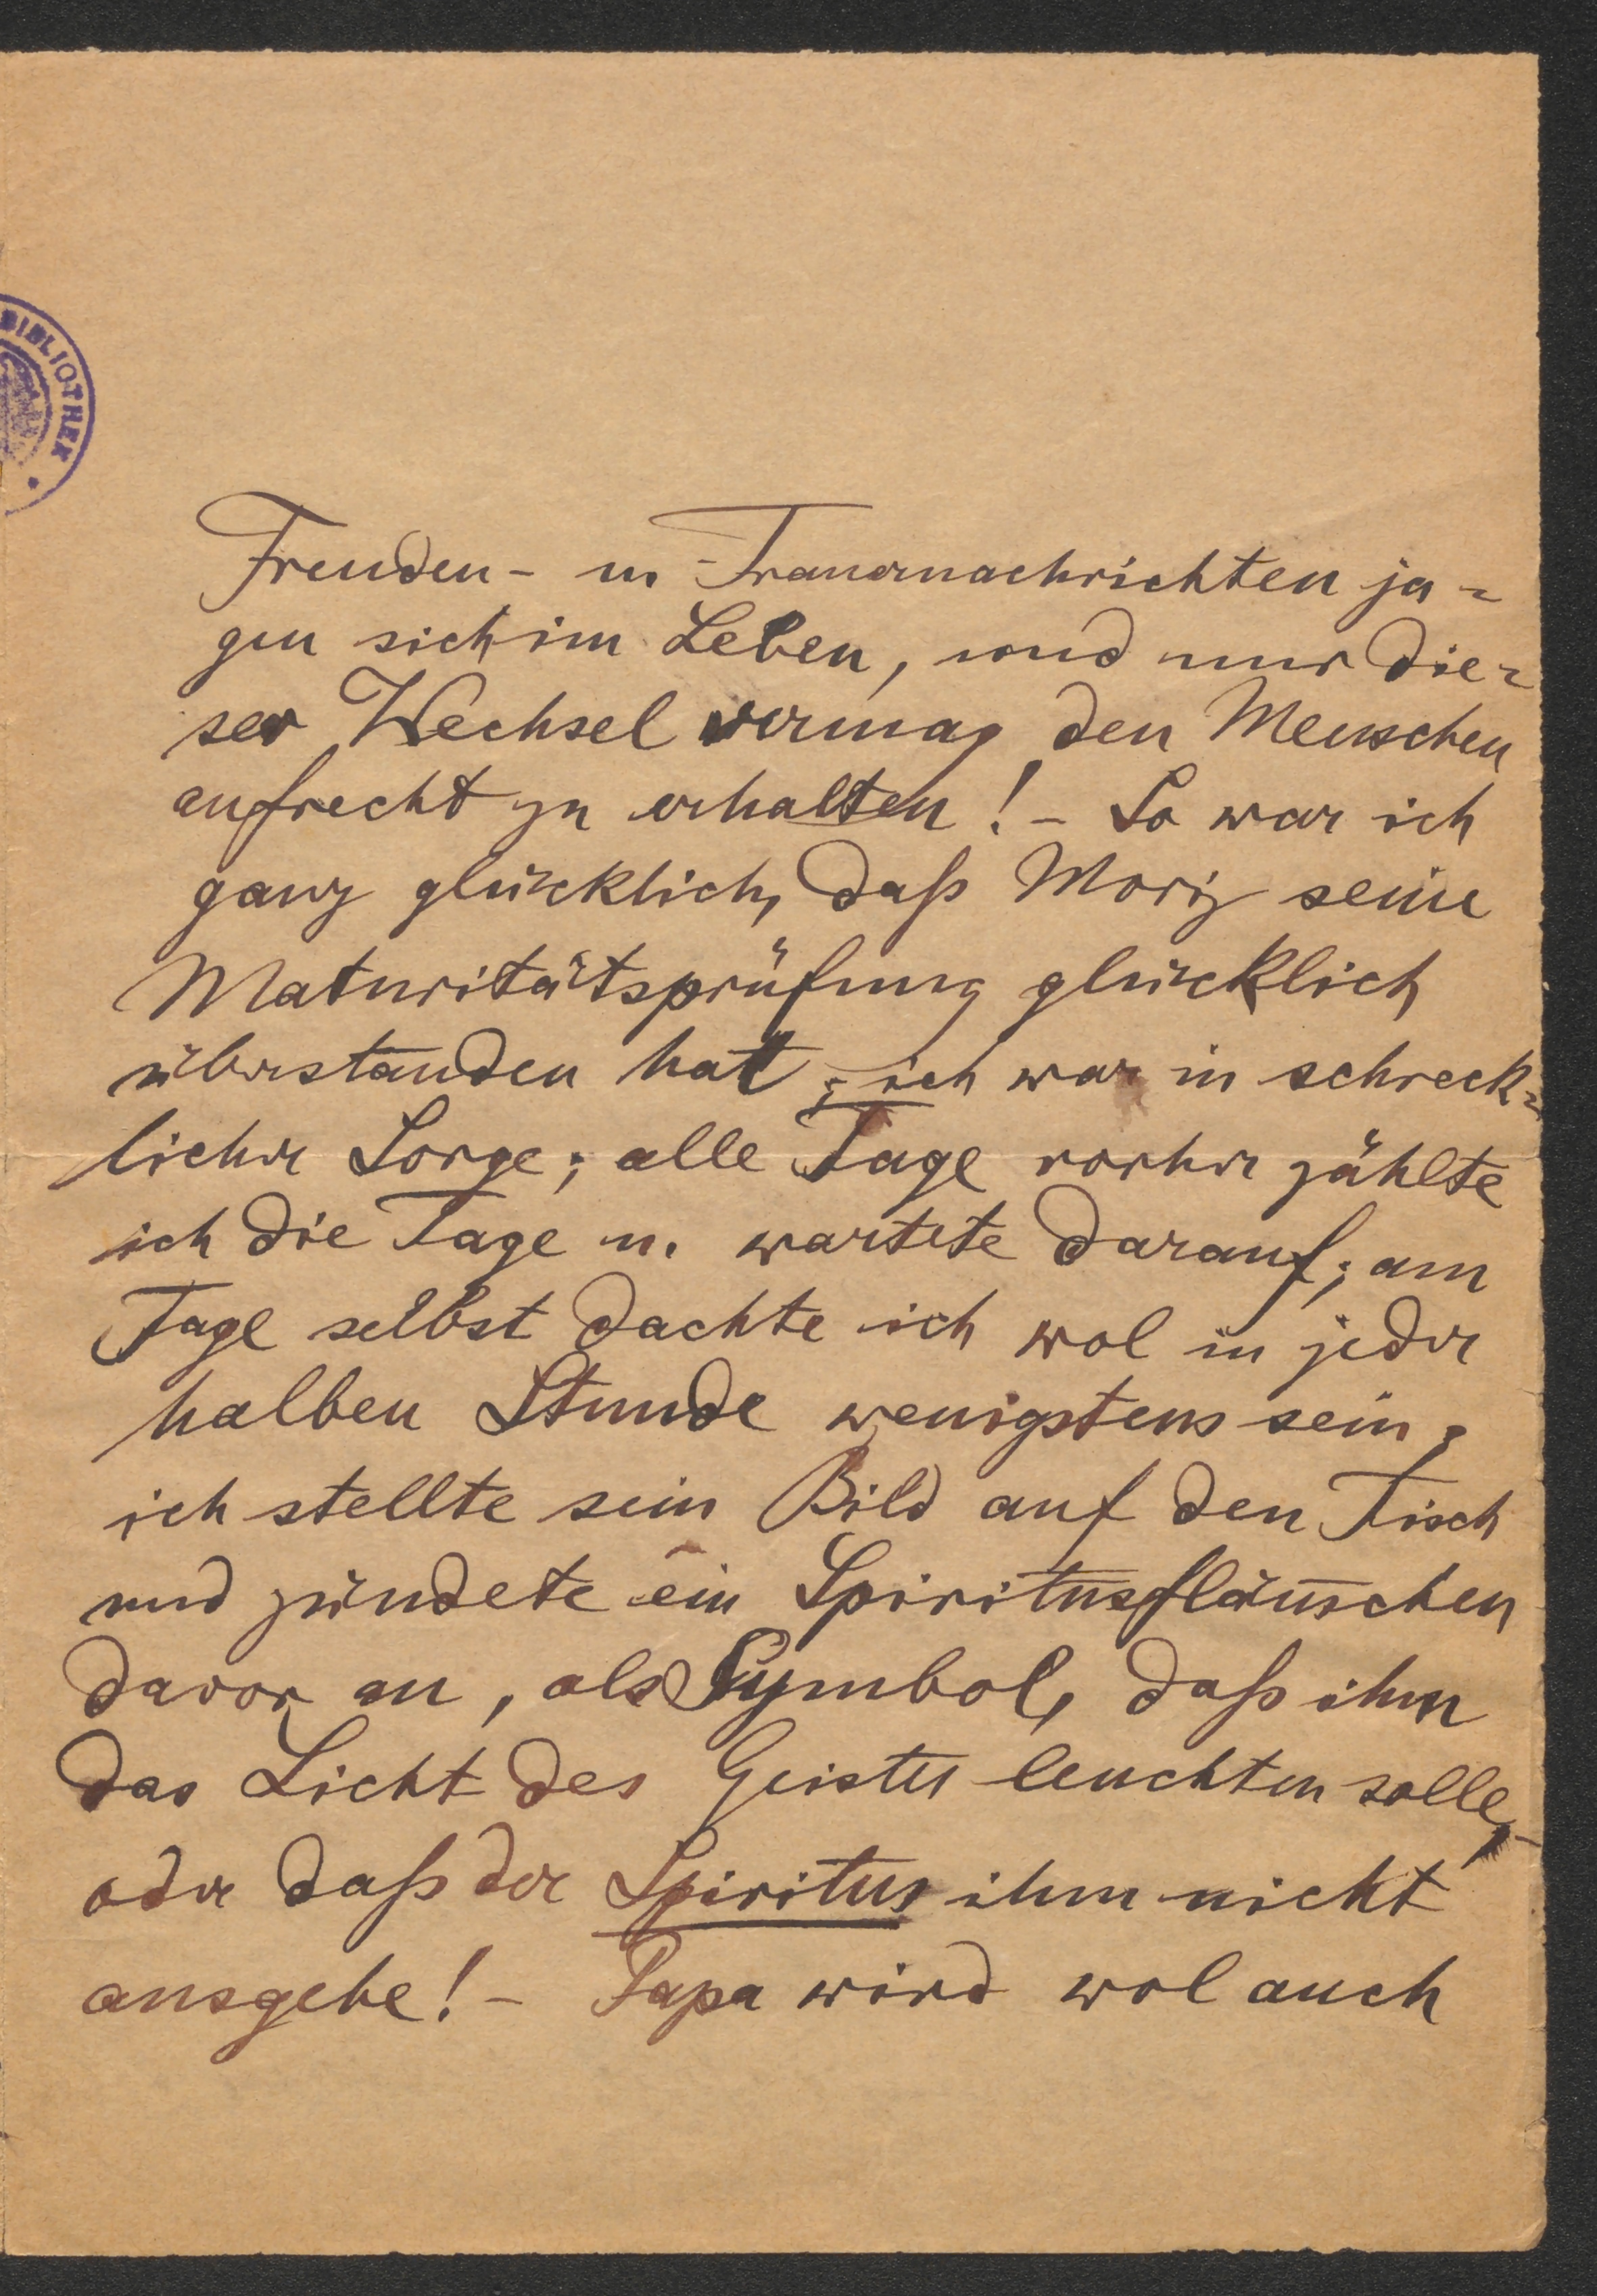 BIBLIOTHEK
Freuden- u. Trauernachrichten ja=
gen sich im Leben, und nur die=
ser Wechsel vermag den Menschen
aufrecht zu erhalten! - So war ich
ganz glücklich, daß Moriz seine
Maturitätsprüfung glücklich
überstanden hat; ich war in schreck=
licher Sorge; alle Tage vorher zählte
ich die Tage u. wartete darauf; am
Tage selbst dachte ich wol in jeder
halben Stunde wenigstens sein;
ich stellte sein Bild auf den Tisch
und zündete ein Spiritusfläm̅chen
davor an, als Symbol, daß ihm
das Licht des Geistes leuchten solle, -
oder daß der Spiritus ihm nicht
ausgehe! - Papa wird wol auch